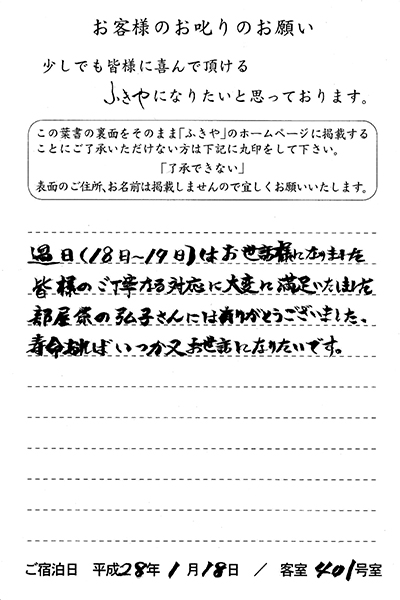 お客様のお叱りのお願い
少しでも皆様に喜んで頂ける
ふきやになりたいと思っております。
この葉書の裏面をそのまま「ふきや」のホームページに掲載する
ことにご了承いただけない方は下記に丸印をして下さい。
「了承できない」
表面のご住所、お名前は掲載しませんので宜しくお願いいたします。
過日(18日~19日)はお世話様になりました
皆様のご丁寧なる対応に大変に満足いたしました
部屋係の弘子さんにはありがとうございました、
寿命あればいつか又お世話になりたいです。
ご宿泊日 平成28年1月18日 / 客室401号室